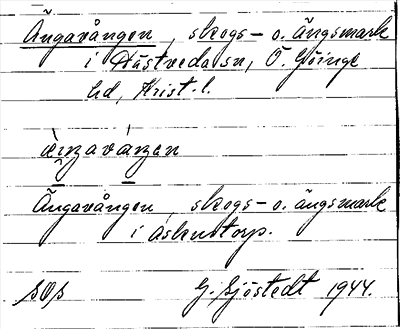 Ängavången, skogs- o. ängsmark
i Hästveda sn, Ö. Göinge
hd, Krist. l.
ä̀ŋavåŋen
Ängavången, skogs- o. ängsmark
i Askenstorp.
G. Sjöstedt 1944.